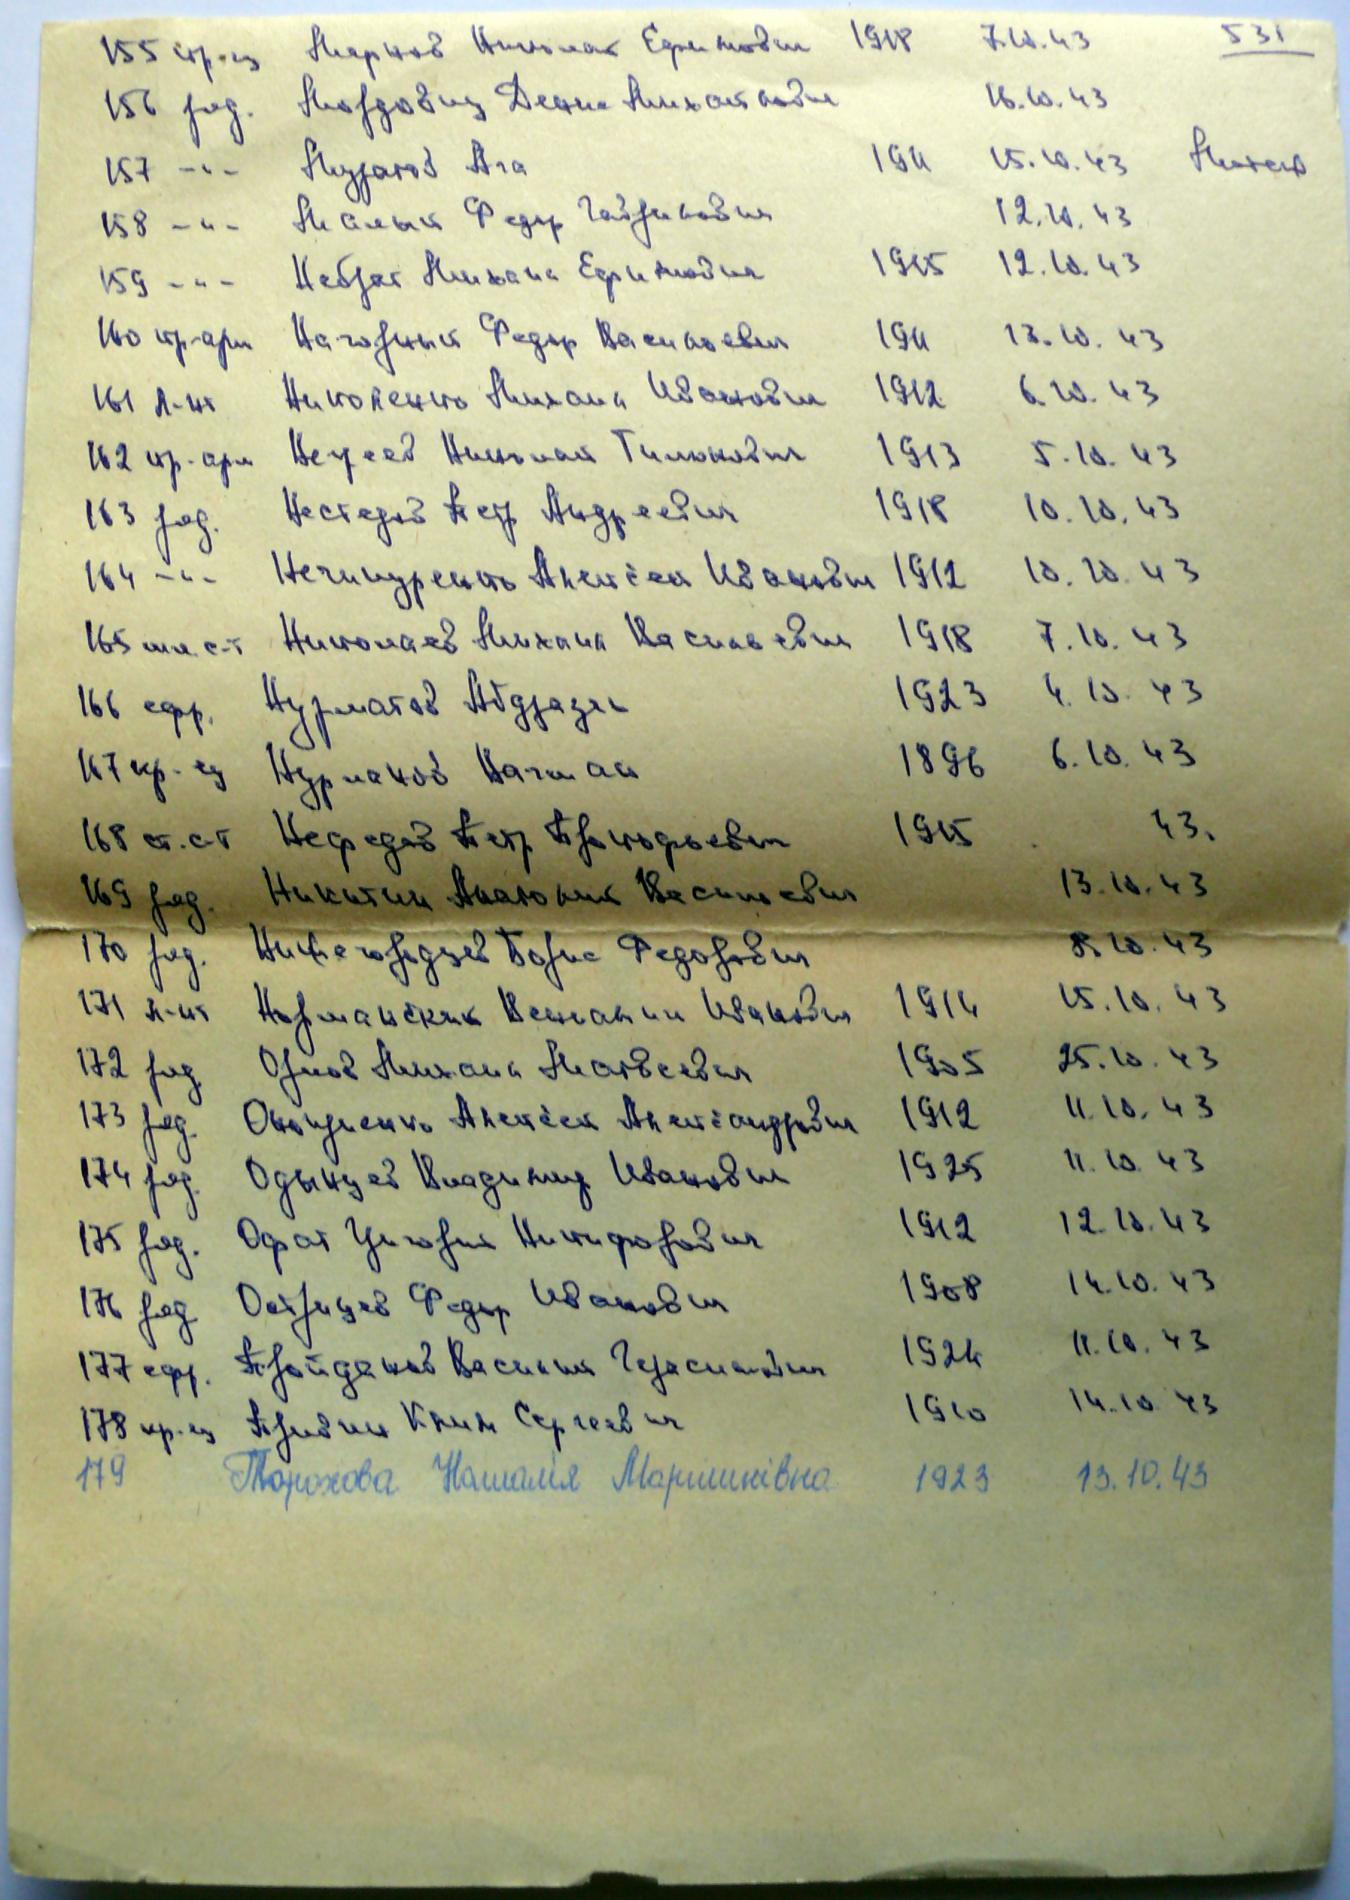 531
155 кр-ец Марков Николай Ефимович 1918 7.10.43
156 ряд. Мордовец Денис Михайлович 16.10.43
157 -"- Муратов Ага 1911 15.10.43
158 -"- Малый Федор 12.10.43
159 -"- Небрат Михаил Ефимович 1915 12.10.43
160 кр-арм Нагорный Федор Васильевич 1911 13.10.43
161 л-нт Николенко Михаил Иванович 1912 6.10.43
162 кр-арм Николай Тихонович 1913 5.10.43
163 ряд. Нестеров Петр Андреевич 1918 10.10.43
164 -"- Нечипуренко Алексей Иванович 1912 10.10.43
165 мл.с-т Николаев Михаил Васильевич 1918 7.10.43
166 ефр. Нурматов Абдразак 1923 4.10.43
167 кр-ец Нурманов 1896 6.10.43
168 ст.с-т Нефедов Петр Прокофьевич 1915 43.
169 ряд. Никитин Анатолий Васильевич 13.10.43
170 ряд. Нижегородцев Борис Федорович 10.43
171 л-нт Норманский Вениамин Иванович 1914 15.10.43
172 ряд Орлов Михаил Матвеевич 1905 25.10.43
173 ряд. Алексей Александрович 1912 11.10.43
174 ряд. Одынцев Владимир Иванович 1925 11.10.43
175 ряд. Офат Григорий Никифорович 1912 12.10.43
176 ряд Федор Иванович 1908 14.10.43
177 ефр. Пройдаков Василий Герасимович 1924 11.10.43
178 кр-ец Клим Сергеевич 1910 14.10.43
179 Порохова Наталія Мартинівна 1923 13.10.43